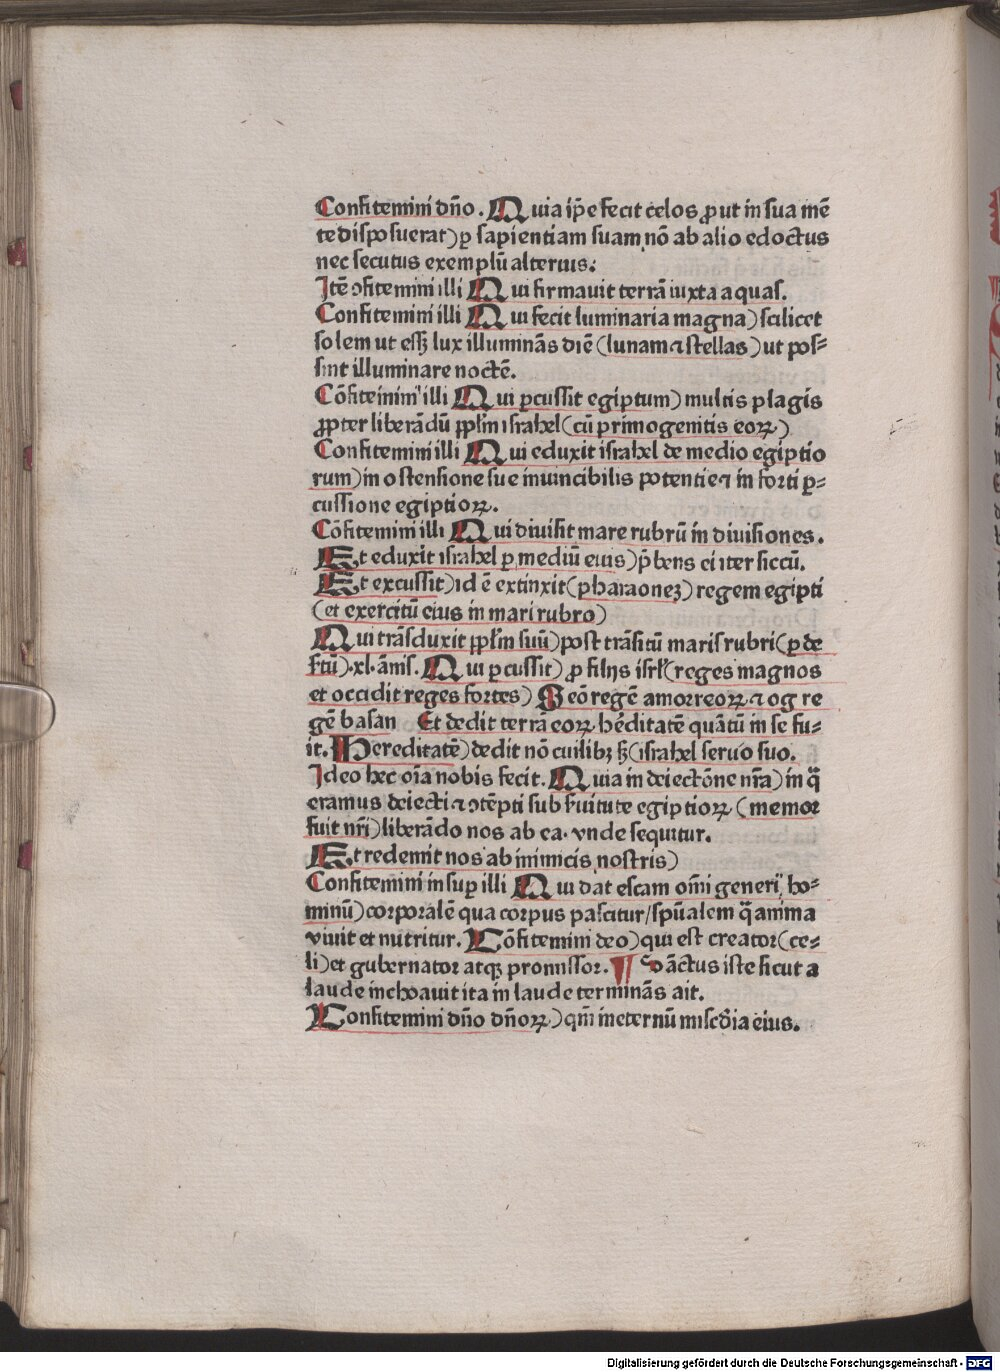 Confitemini dño. Quia ip̄e fecit celos ꝓut in sua mē
te disposuerat) ꝑ sapientiam suam nō ab alio edoctus
nec secutus exemplū alterius.
Itē ↄfitemini illi Qui firmauit terrā iuxta aquas.
Confitemini illi Qui fecit luminaria magna) scilicet
solem ut esset lux illuminās diē (lunam ⁊ stellas) ut pos⸗
sint illuminare noctē.
Cōfitemini illi Qui ꝑcussit egiptum) multis plagis
ꝓpter liberādū ppl̄m israhel (cū primogenitis eoꝝ)
Confitemini illi Qui eduxit israhel de medio egiptio
rum) in ostensione sue inuincibilis potentie ⁊ in forti ꝑ⸗
cussione egiptioꝝ.
Cōfitemini illi Qui diuisit mare rubrū in diuisiones.
Et eduxit israhel ꝑ mediū eius) p̄bens ei iter siccū.
Et excussit) id ē extinxit (pharaoneꝫ) regem egipti
(et exercitū eius in mari rubro)
Qui trāsduxit ppl̄m suū) post trāsitū maris rubri (ꝑ de
s̄tū) .xl. ānis. Qui ꝑcussit) ꝓ filijs isrl̄ (reges magnos
et occidit reges fortes) Seō regē amorreoꝝ ⁊ og re
gē basan Et dedit terrā eoꝝ h̄editatē quātū in se fu⸗
it. Hereditatē) dedit nō cuilibꝫ sꝫ (israhel seruo suo.
Ideo hec oīa nobis fecit. Quia in deiectōne nr̄a) in q̄
eramus deiecti ⁊ ↄtēpti sub s̄uitute egiptioꝝ (memor
fuit nr̄i) liberādo nos ab ea. vnde sequitur.
Et redemit nos ab inimicis nostris)
Confitemini insuꝑ illi Qui dat escam om̄i generi) ho⸗
minū) corporalē qua corpus pascitur / spūalem q̄ anima
viuit et nutritur. Cōfitemini deo) qui est creator (ce⸗
li) et gubernator atqꝫ promissor. ¶ Sāctus iste sicut a
laude inchoauit ita in laude terminās ait.
Confitemini dño dñoꝝ) qm̄ in eternū mis̄cdīa eius.
Digitalisierung gefördert durch die Deutsche Forschungsgemeinschaft - DFG